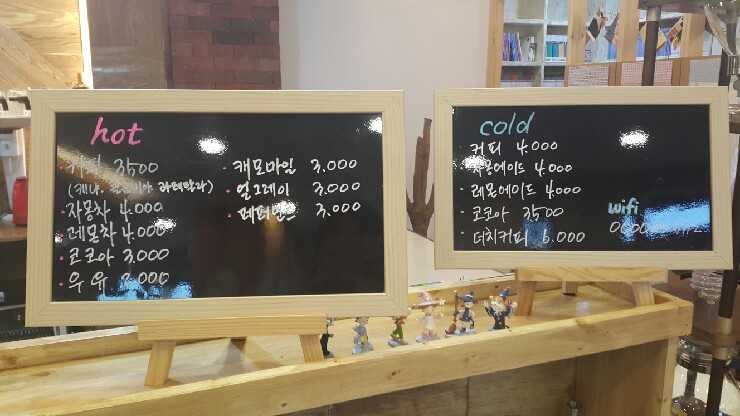 hot
커피 3500
(케냐. 콜롬비아 과테말라)
· 자몽차 4.000
· 레몬차 4.000
· 코코아 3.000
· 우유 2.000
· 캐모마일 3.000
· 얼그레이 3.000
· 페퍼민트 3.000
cold
· 커피 4.000
· 자몽에이드 4.000
· 레몬에이드 4.000
· 코코아 3500
· 더치커피 6.000
wifi